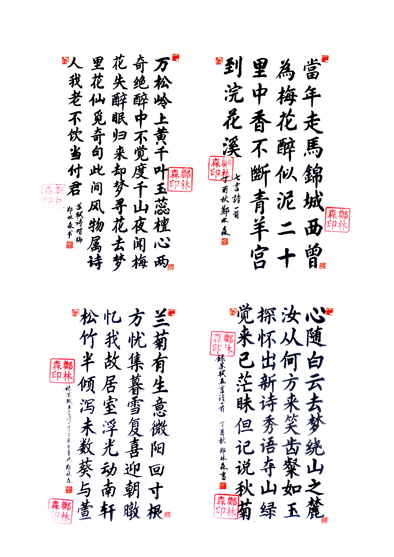 當年走馬錦城西曾
為梅花醉似泥二十
里中香不斷青羊宮
到浣花溪
七言詩一首
丁酉秋鄭林森
鄭林森印
鄭林森印
万松岭上黄千叶玉蕊檀心两
奇绝醉中不觉度千山夜闻梅
花失醉眠归来却梦寻花去梦
里花仙觅奇句此间风物属诗
人我老不饮当付君
郑林森书
鄭林森印
鄭林森印
心随白云去梦绕山之麓
汝从何方来笑齿粲如玉
探怀出新诗秀语夺山绿
觉来已茫昧但记说秋菊
録苏轼五言诗一首 丁酉秋 郑林森書
鄭林森印
鄭林森印
兰菊有生意微阳回寸根
方忧集暮雪复喜迎朝暾
忆我故居室浮光动南轩
松竹半倾泻未数葵与萱
鄭林森印
鄭林森印